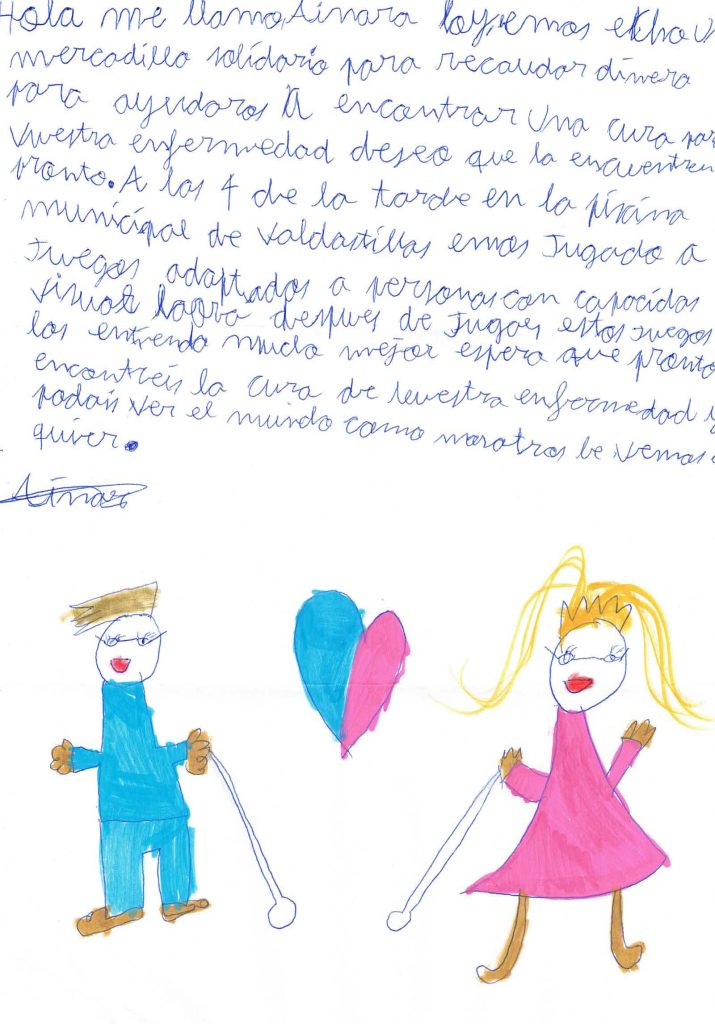 Hola me llamo Ainara hoy emos etcho U
mercadillo solidario para recaudar dinero
para ayudaros A encontrar Una cura par
vuestra enfermedad deseo que la encuentren
pronto. A las 4 de la tarde en la piscina
municipal de Valdastillas emos Jugado a
Juegos adaptados a personas con capacidas
visual haora despues de Jugar estos juegos
los entiendo mucho mejor espero que pronto
encontréis la cura de vuestra enfermedad y
podais ver el mundo como nosotros be vemos
quiver.
Ainara